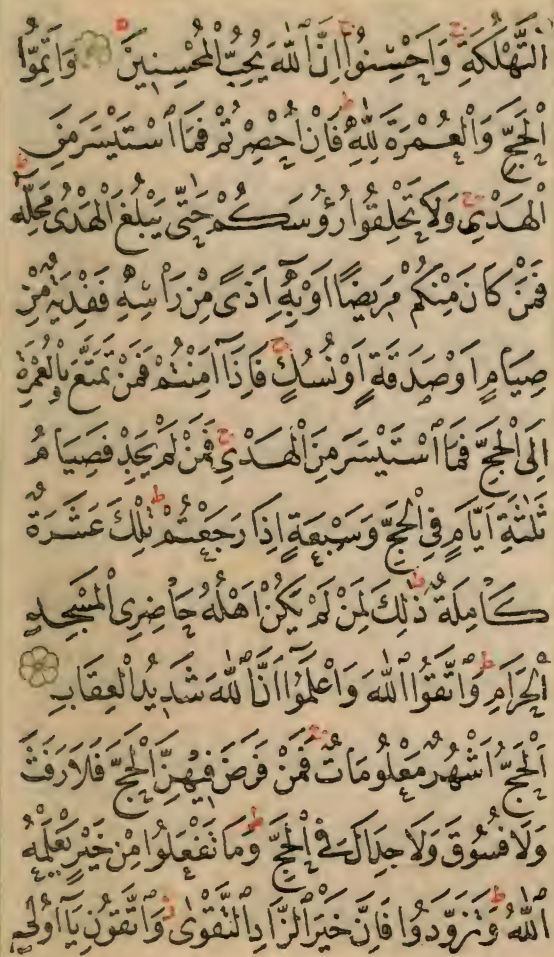 اَلتَّهْلُكَةِ ج وَاَحْسِنُوا ج اِنَّ اللّٰهَ يُحِبُّ الْمُحْسِنِينَ وَاَتِمُّوا
الْحَجَّ وَالْعُمْرَةَ لِلّٰهِ ط فَاِنْ اُحْصِرْتُمْ فَمَا اسْتَيْسَرَ مِنَ
الْهَدْيِ ج وَلَا تَحْلِقُوا رُؤُسَكُمْ حَتّٰى يَبْلُغَ الْهَدْىُ مَحِلَّهُ ط
فَمَنْ كَانَ مِنْكُمْ مَرِيضًا اَوْ بِهِٓ اَذًى مِنْ رَاْسِهِ فَفِدْيَةٌ مِنْ
صِيَامٍ اَوْ صَدَقَةٍ اَوْ نُسُكٍ ج فَاِذَٓا اَمِنْتُمْ فَمَنْ تَمَتَّعَ بِالْعُمْرَةِ
اِلَى الْحَجِّ فَمَا اسْتَيْسَرَ مِنَ الْهَدْيِ ج فَمَنْ لَمْ يَجِدْ فَصِيَامُ
ثَلٰثَةِ اَيَّامٍ فِى الْحَجِّ وَسَبْعَةٍ اِذَا رَجَعْتُمْ ط تِلْكَ عَشَرَةٌ
كَامِلَةٌ ط ذٰلِكَ لِمَنْ لَمْ يَكُنْ اَهْلُهُ حَاضِرِى الْمَسْجِدِ
الْحَرَامِ ط وَاتَّقُوا اللّٰهَ وَاعْلَمُٓوا اَنَّ اللّٰهَ شَدِيدُ الْعِقَابِ
اَلْحَجُّ اَشْهُرٌ مَعْلُومَاتٌ ج فَمَنْ فَرَضَ فِيهِنَّ الْحَجَّ فَلَا رَفَثَ
وَلَا فُسُوقَ وَلَا جِدَالَ فِى الْحَجِّ ط وَمَا تَفْعَلُوا مِنْ خَيْرٍ يَعْلَمْهُ
اللّٰهُ ط وَتَزَوَّدُوا فَاِنَّ خَيْرَ الزَّادِ التَّقْوٰى ز وَاتَّقُونِ يَٓا اُولِى